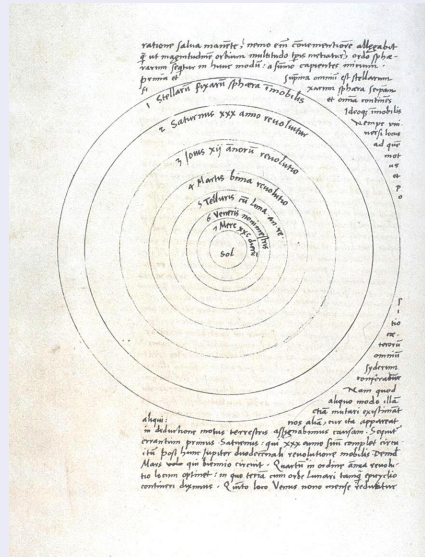 ratione salua manente, nemo em̄ conuenientiore allegabit
q̄ ut magnitudinē orbium multitudo tp̄is metiatur, ordo sphæ-
rarum seq̄tur in hunc modū: a sūmo capientes initium.
prima et suprema omniū est stellarum
fi xarum sphæra seipsam
et omīa continens
Ideoq̨ īmobilis
nempe vni
uersi locus
ad quē
mot
us
et
p
o
1 Stellarū fixarū sphæra īmobilis
2 Saturnus xxx anno reuoluitur
3 Iouis xij annorū reuolutio
4 Martis bima reuolutio
5 Telluris cū Luna an. re.
6 Veneris nonimestris
7 Merc xxc dierū
Sol
s
i
tio
cæ-
terorū
omniū
syderum
conferatur
Nam quod
aliquo modo illā
etiā mutari existimāt
aliqui: nos aliā, cur ita appareat
in deductione motus terrestris assignabimus causam. Sequit
errantium primus Saturnus: qui xxx anno suū complet circu
itū post hunc Iupiter duodecennali reuolutione mobilis Deind
Mars qui biennio circuit. Quartū in ordine annua reuolu-
tio locum optinet: in quo terrā cum orbe lunari tamq̄ epicyclio
contineri diximus. Quinto loco Venus nono mense reducitur